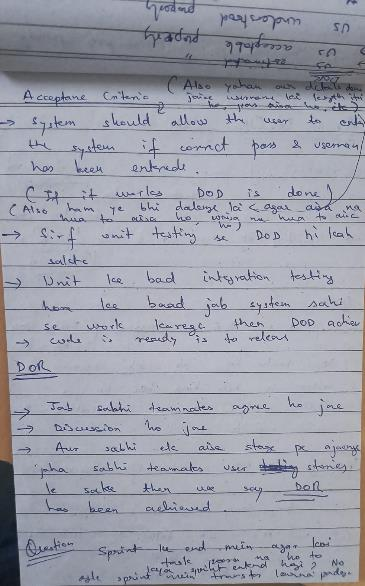 US understood properly
US acceptable properly
US estimated "
DOR
Acceptane Criteria (Also yahan our details dena
jaise username ki length itni
ho, pass aisa ho, etc)
→ System should allow the user to enter
the system if correct pass & username
has been entered.
(If it works DOD is done)
(Also ham ye bhi dalenge ki agar aisa na
hua to aisa ho, waisa na hua to aise
ho)
→ Sirf unit testing se DOD hi keh
sakte
→ Unit ke bad integration testing
hone ke baad jab system sahi
se work karega then DOD achiev
→ code is ready is to releas
DOR
→ Jab sabhi teamnates agree ho jae
→ Discussion ho jae
→ Aur sabhi ek aise stage pe ajaenge
jaha sabhi teamates user stories
le sake then we say DOR
has been achieved.
Question Sprint ke end mein agar koi
task poora na ho to
kya sprint extend hogi? No
agle sprint mein transfer karna padega